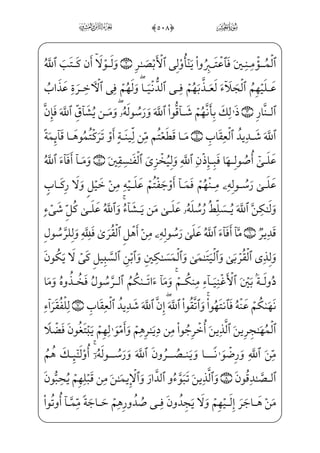 سورة الحشر ﴿٥٠٨﴾ الجزء الثامن والعشرون
ٱلْمُؤْمِنِينَ فَٱعْتَبِرُوا۟ يَٰٓأُو۟لِى ٱلْأَبْصَٰرِ ۝٢ وَلَوْلَآ أَن كَتَبَ ٱللَّهُ
عَلَيْهِمُ ٱلْجَلَآءَ لَعَذَّبَهُمْ فِى ٱلدُّنْيَا ۖ وَلَهُمْ فِى ٱلْءَاخِرَةِ عَذَابُ
ٱلنَّارِ ۝٣ ذَٰلِكَ بِأَنَّهُمْ شَآقُّوا۟ ٱللَّهَ وَرَسُولَهُۥ ۖ وَمَن يُشَآقِّ ٱللَّهَ فَإِنَّ
ٱللَّهَ شَدِيدُ ٱلْعِقَابِ ۝٤ مَا قَطَعْتُم مِّن لِّينَةٍ أَوْ تَرَكْتُمُوهَا قَآئِمَةً
عَلَىٰٓ أُصُولِهَا فَبِإِذْنِ ٱللَّهِ وَلِيُخْزِىَ ٱلْفَٰسِقِينَ ۝٥ وَمَآ أَفَآءَ ٱللَّهُ
عَلَىٰ رَسُولِهِۦ مِنْهُمْ فَمَآ أَوْجَفْتُمْ عَلَيْهِ مِنْ خَيْلٍ وَلَا رِكَابٍ
وَلَٰكِنَّ ٱللَّهَ يُسَلِّطُ رُسُلَهُۥ عَلَىٰ مَن يَشَآءُ ۚ وَٱللَّهُ عَلَىٰ كُلِّ شَىْءٍ
قَدِيرٌ ۝٦ مَّآ أَفَآءَ ٱللَّهُ عَلَىٰ رَسُولِهِۦ مِنْ أَهْلِ ٱلْقُرَىٰ فَلِلَّهِ وَلِلرَّسُولِ
وَلِذِى ٱلْقُرْبَىٰ وَٱلْيَتَٰمَىٰ وَٱلْمَسَٰكِينِ وَٱبْنِ ٱلسَّبِيلِ كَىْ لَا يَكُونَ
دُولَةًۢ بَيْنَ ٱلْأَغْنِيَآءِ مِنكُمْ ۚ وَمَآ ءَاتَىٰكُمُ ٱلرَّسُولُ فَخُذُوهُ وَمَا
نَهَىٰكُمْ عَنْهُ فَٱنتَهُوا۟ ۚ وَٱتَّقُوا۟ ٱللَّهَ ۖ إِنَّ ٱللَّهَ شَدِيدُ ٱلْعِقَابِ ۝٧ لِلْفُقَرَآءِ
ٱلْمُهَٰجِرِينَ ٱلَّذِينَ أُخْرِجُوا۟ مِن دِيَٰرِهِمْ وَأَمْوَٰلِهِمْ يَبْتَغُونَ فَضْلًا
مِّنَ ٱللَّهِ وَرِضْوَٰنًا وَيَنصُرُونَ ٱللَّهَ وَرَسُولَهُۥٓ ۚ أُو۟لَٰٓئِكَ هُمُ
ٱلصَّٰدِقُونَ ۝٨ وَٱلَّذِينَ تَبَوَّءُو ٱلدَّارَ وَٱلْإِيمَٰنَ مِن قَبْلِهِمْ يُحِبُّونَ
مَنْ هَاجَرَ إِلَيْهِمْ وَلَا يَجِدُونَ فِى صُدُورِهِمْ حَاجَةً مِّمَّآ أُوتُوا۟